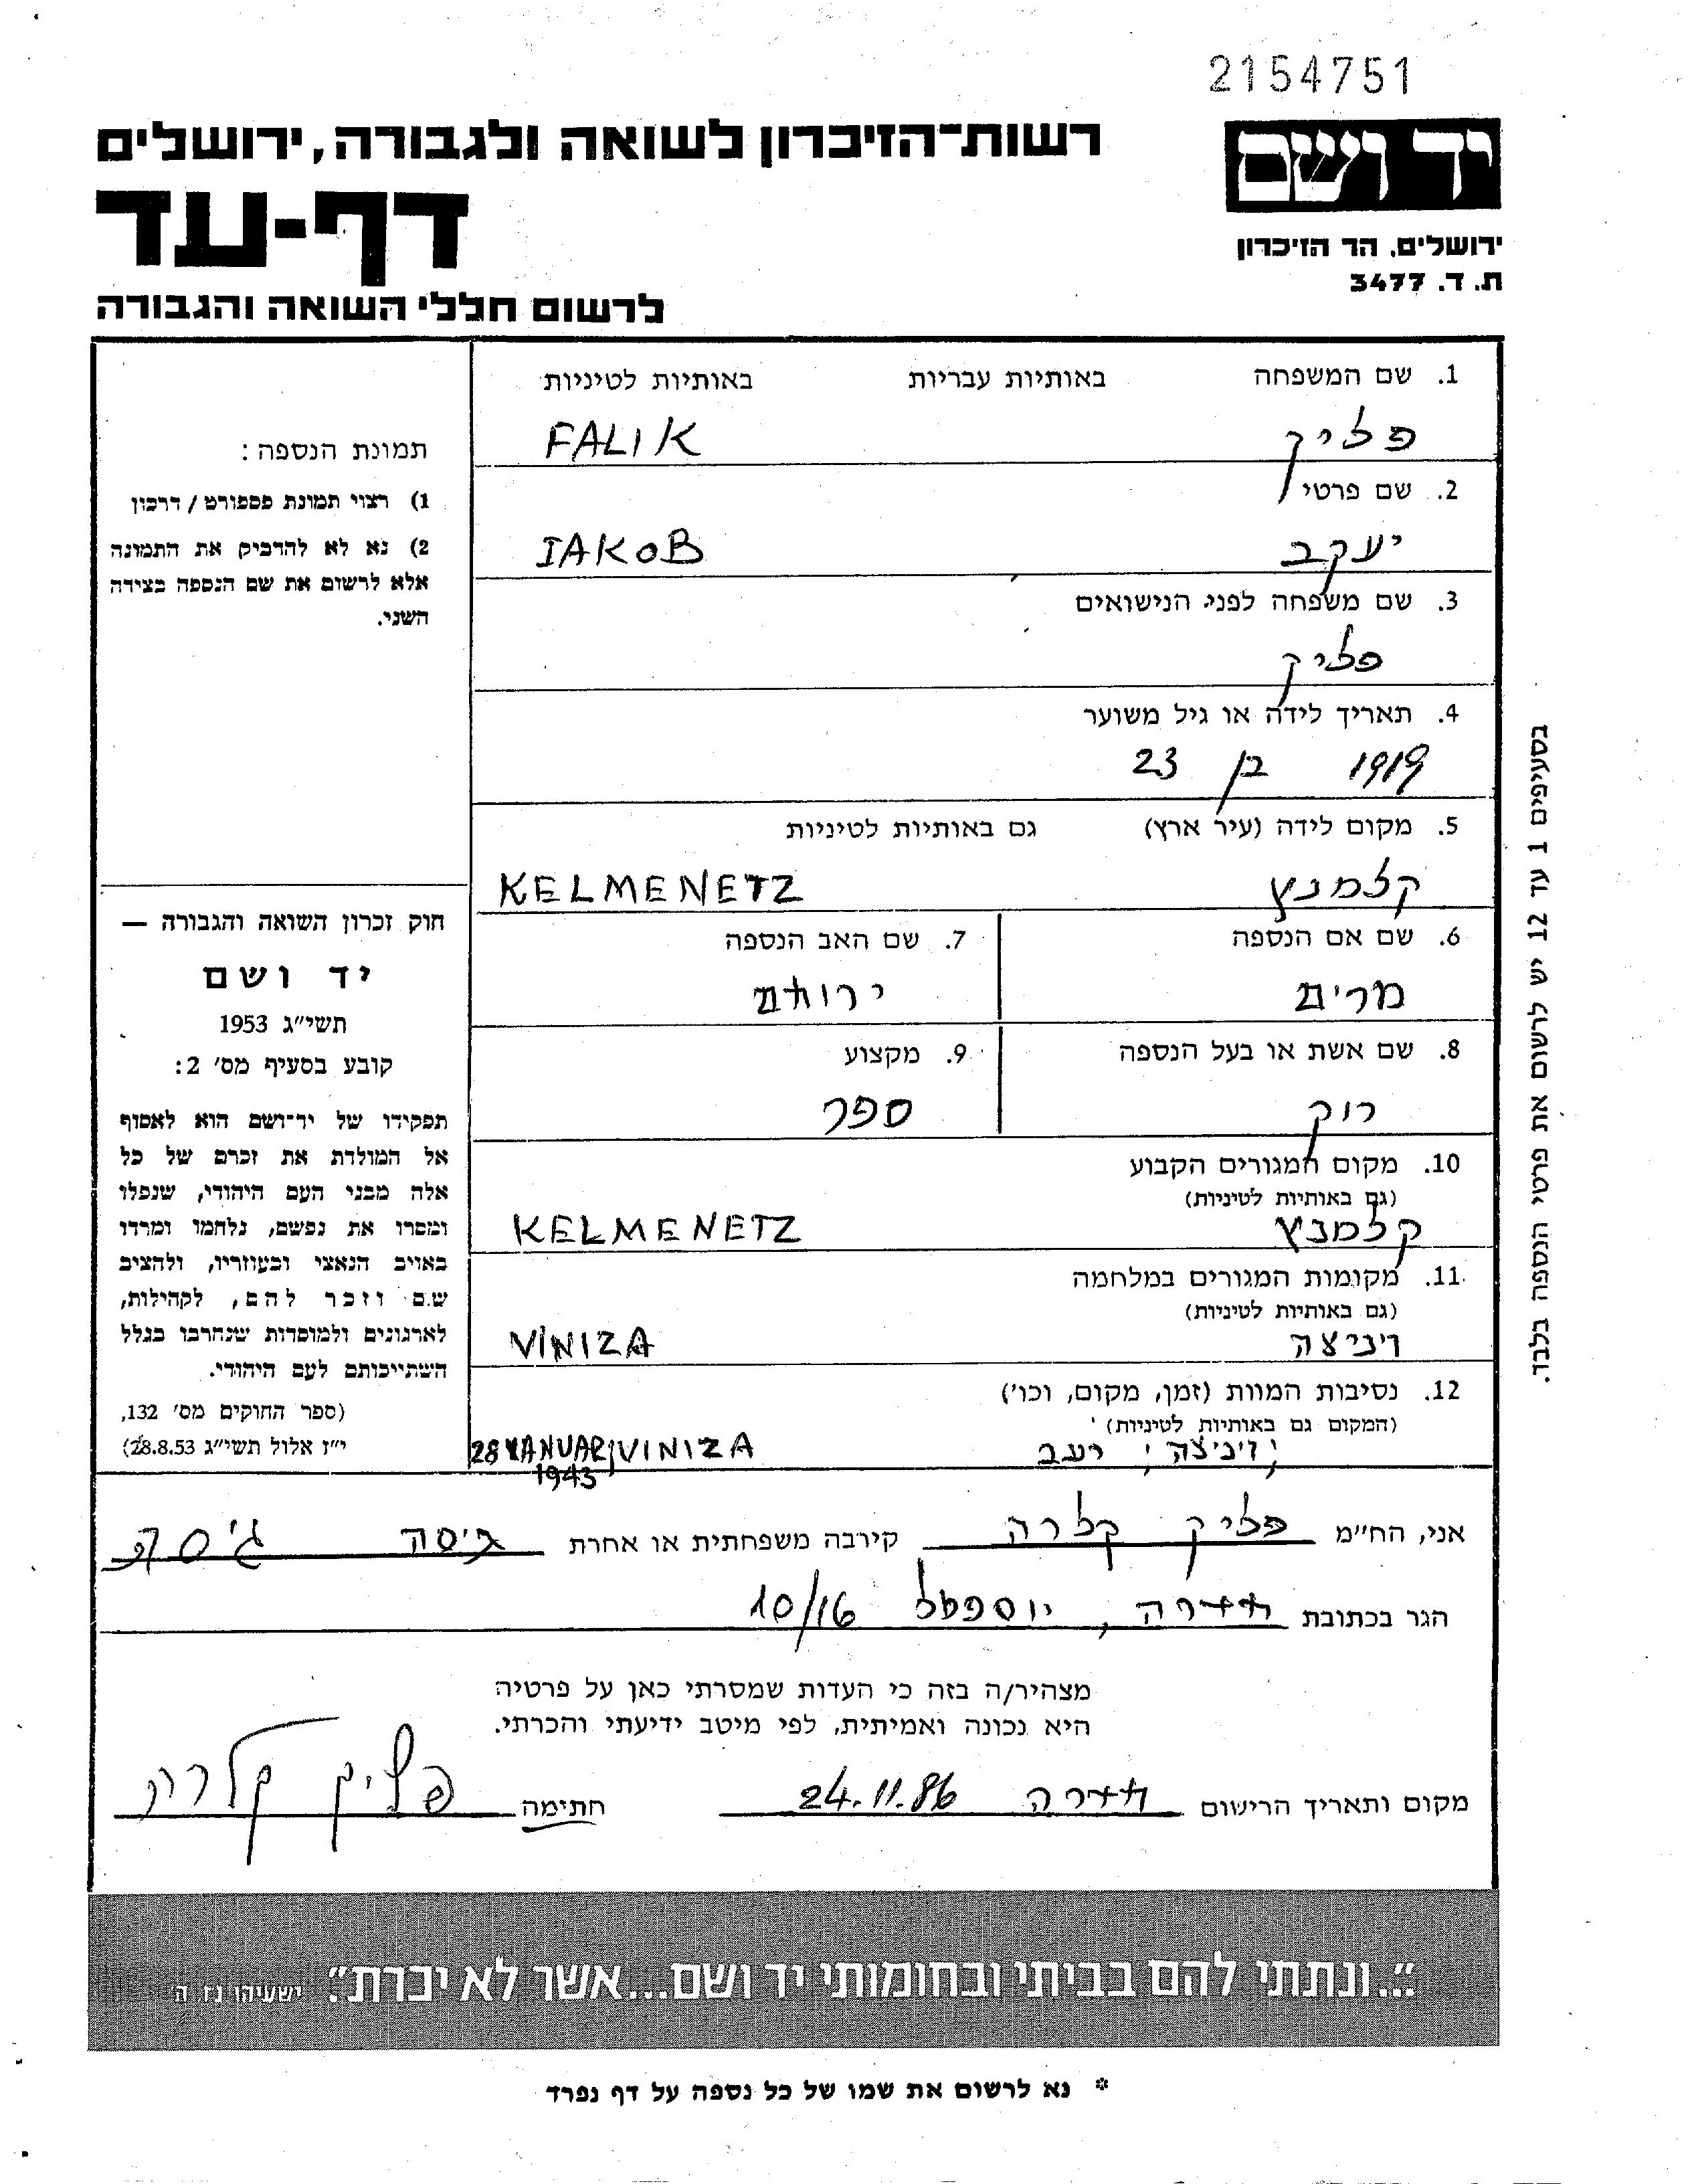 2154751
יד ושם
רשות־הזיכרון לשואה ולגבורה, ירושלים
דף-עד
ירושלים, הר הזיכרון
ת. ד. 3477
לרשום חללי השואה והגבורה
1. שם המשפחה באותיות עבריות באותיות לטיניות
פליק FALIK
2. שם פרטי
יעקב IAKOB
3. שם משפחה לפני הנישואים
פליק
4. תאריך לידה או גיל משוער
1919 בן 23
5. מקום לידה (עיר ארץ) גם באותיות לטיניות
קלמנץ KELMENETZ
6. שם אם הנספה 7. שם האב הנספה
מרים ירוחם
8. שם אשת או בעל הנספה 9. מקצוע
רווק ספר
10. מקום המגורים הקבוע
(גם באותיות לטיניות)
קלמנץ KELMENETZ
11. מקומות המגורים במלחמה
(גם באותיות לטיניות)
ויניצה VINIZA
12. נסיבות המוות (זמן, מקום, וכו')
(המקום גם באותיות לטיניות)
ויניצה, רעב 28 YANUAR, VINIZA
1943
תמונת הנספה:
1) רצוי תמונת פספורט / דרכון
2) נא לא להדביק את התמונה
אלא לרשום את שם הנספה בצידה
השני.
חוק זכרון השואה והגבורה —
יד ושם
תשי"ג 1953
קובע בסעיף מס' 2:
תפקידו של יד־ושם הוא לאסוף
אל המולדת את זכרם של כל
אלה מבני העם היהודי, שנפלו
ומסרו את נפשם, נלחמו ומרדו
באויב הנאצי ובעוזריו, ולהציב
שם וזכר להם, לקהילות,
לארגונים ולמוסדות שנחרבו בגלל
השתייכותם לעם היהודי.
(ספר החוקים מס' 132,
י"ז אלול תשי"ג 28.8.53)
בסעיפים 1 עד 12 יש לרשום את פרטי הנספה בלבד.
אני, הח"מ פליק קלרה קירבה משפחתית או אחרת גיסה
הגר בכתובת חדרה, יוספטל 10/16
מצהיר/ה בזה כי העדות שמסרתי כאן על פרטיה
היא נכונה ואמיתית, לפי מיטב ידיעתי והכרתי.
מקום ותאריך הרישום חדרה 24.11.86 חתימה פליק קלרה
"...ונתתי להם בביתי ובחומותי יד ושם...אשר לא יכרת" ישעיהו נו, ה
* נא לרשום את שמו של כל נספה על דף נפרד